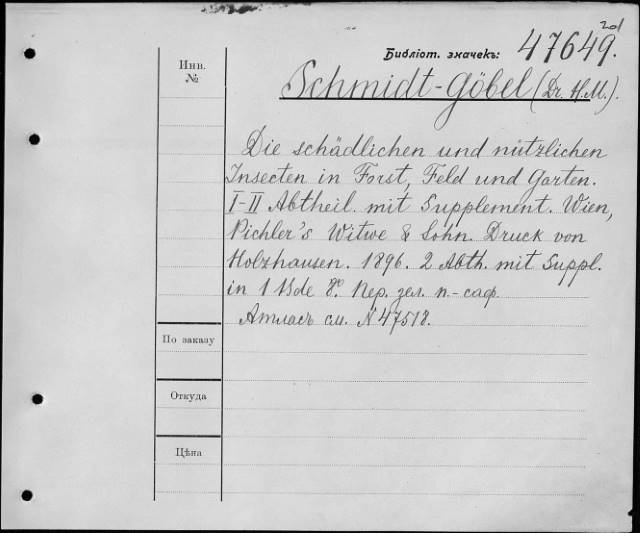 201
Библіот. значекъ: 47649.
Инв.
№
Schmidt-Göbel (Dr. H.M.).
Die schädlichen und nützlichen
Insecten in Forst, Feld und Garten.
I-II Abtheil. mit Supplement. Wien,
Pichler's Witwe & Sohn. Druck von
Holzhausen. 1896. 2 Abth. mit Suppl.
in 1 Bde 8º. Пер. зел. п.-саф.
Атласъ см. № 47518.
По заказу
Откуда
Цѣна